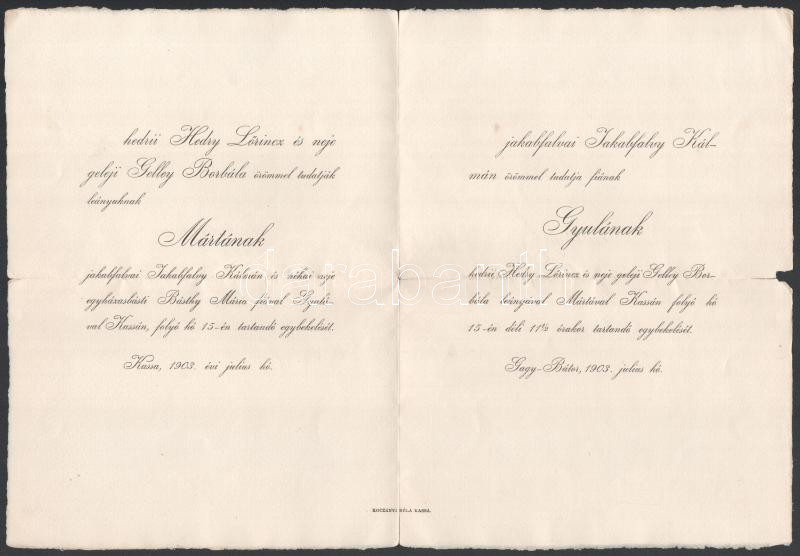 hedrii Hedry Lőrincz és neje
geleji Gelley Borbála örömmel tudatják
leányuknak
Mártának
jakabfalvai Jakabfalvy Kálmán és néhai neje
egyházasbásti Básthy Mária fiával Gyulá-
val Kassán, folyó hó 15-én tartandó egybekelését.
Kassa, 1903. évi julius hó.
jakabfalvai Jakabfalvy Kál-
mán örömmel tudatja fiának
Gyulának
hedrii Hedry Lőrincz és neje geleji Gelley Bor-
bála leányával Mártával Kassán folyó hó
15-én déli 11½ órakor tartandó egybekelését.
Gagy-Bátor, 1903. julius hó.
KOCZÁNYI BÉLA KASSA.
darabanth